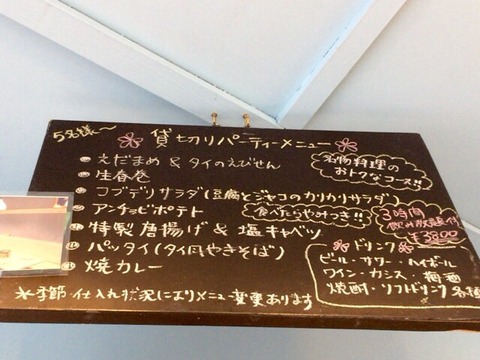 5名様〜
貸切りパーティーメニュー
名物料理の
おトクなコース!!
えだまめ & タイのえびせん
生春巻
コブデリサラダ(豆腐とジャコのカリカリサラダ)
アンチョビポテト
食べたらやみつき!!
特製 唐揚げ & 塩キャベツ
パッタイ(タイ風やきそば)
焼カレー
3時間
飲み放題付
¥3800
ドリンク
ビール・サワー・ハイボール
ワイン・カシス・梅酒
焼酎・ソフトドリンク 各種
※季節・仕入れ状況によりメニュー変更あります